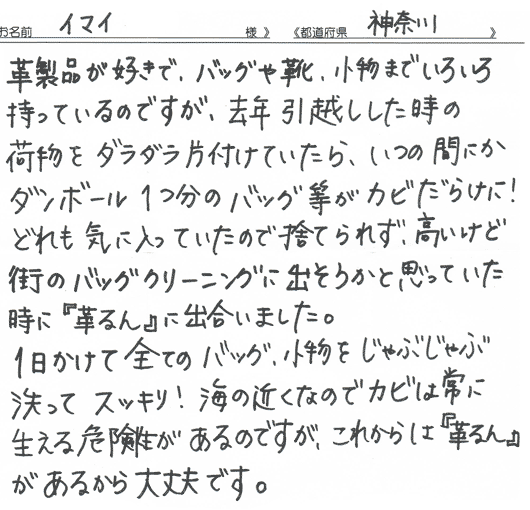 お名前 イマイ 様 》 《都道府県 神奈川 》
革製品が好きで、バッグや靴、小物までいろいろ
持っているのですが、去年引越しした時の
荷物をダラダラ片付けていたら、いつの間にか
ダンボール1つ分のバッグ等がカビだらけに!
どれも気に入っていたので捨てられず、高いけど
街のバッグクリーニングに出そうかと思っていた
時に『革るん』に出合いました。
1日かけて全てのバッグ、小物をじゃぶじゃぶ
洗ってスッキリ! 海の近くなのでカビは常に
生える危険性があるのですが、これからは『革るん』
があるから大丈夫です。